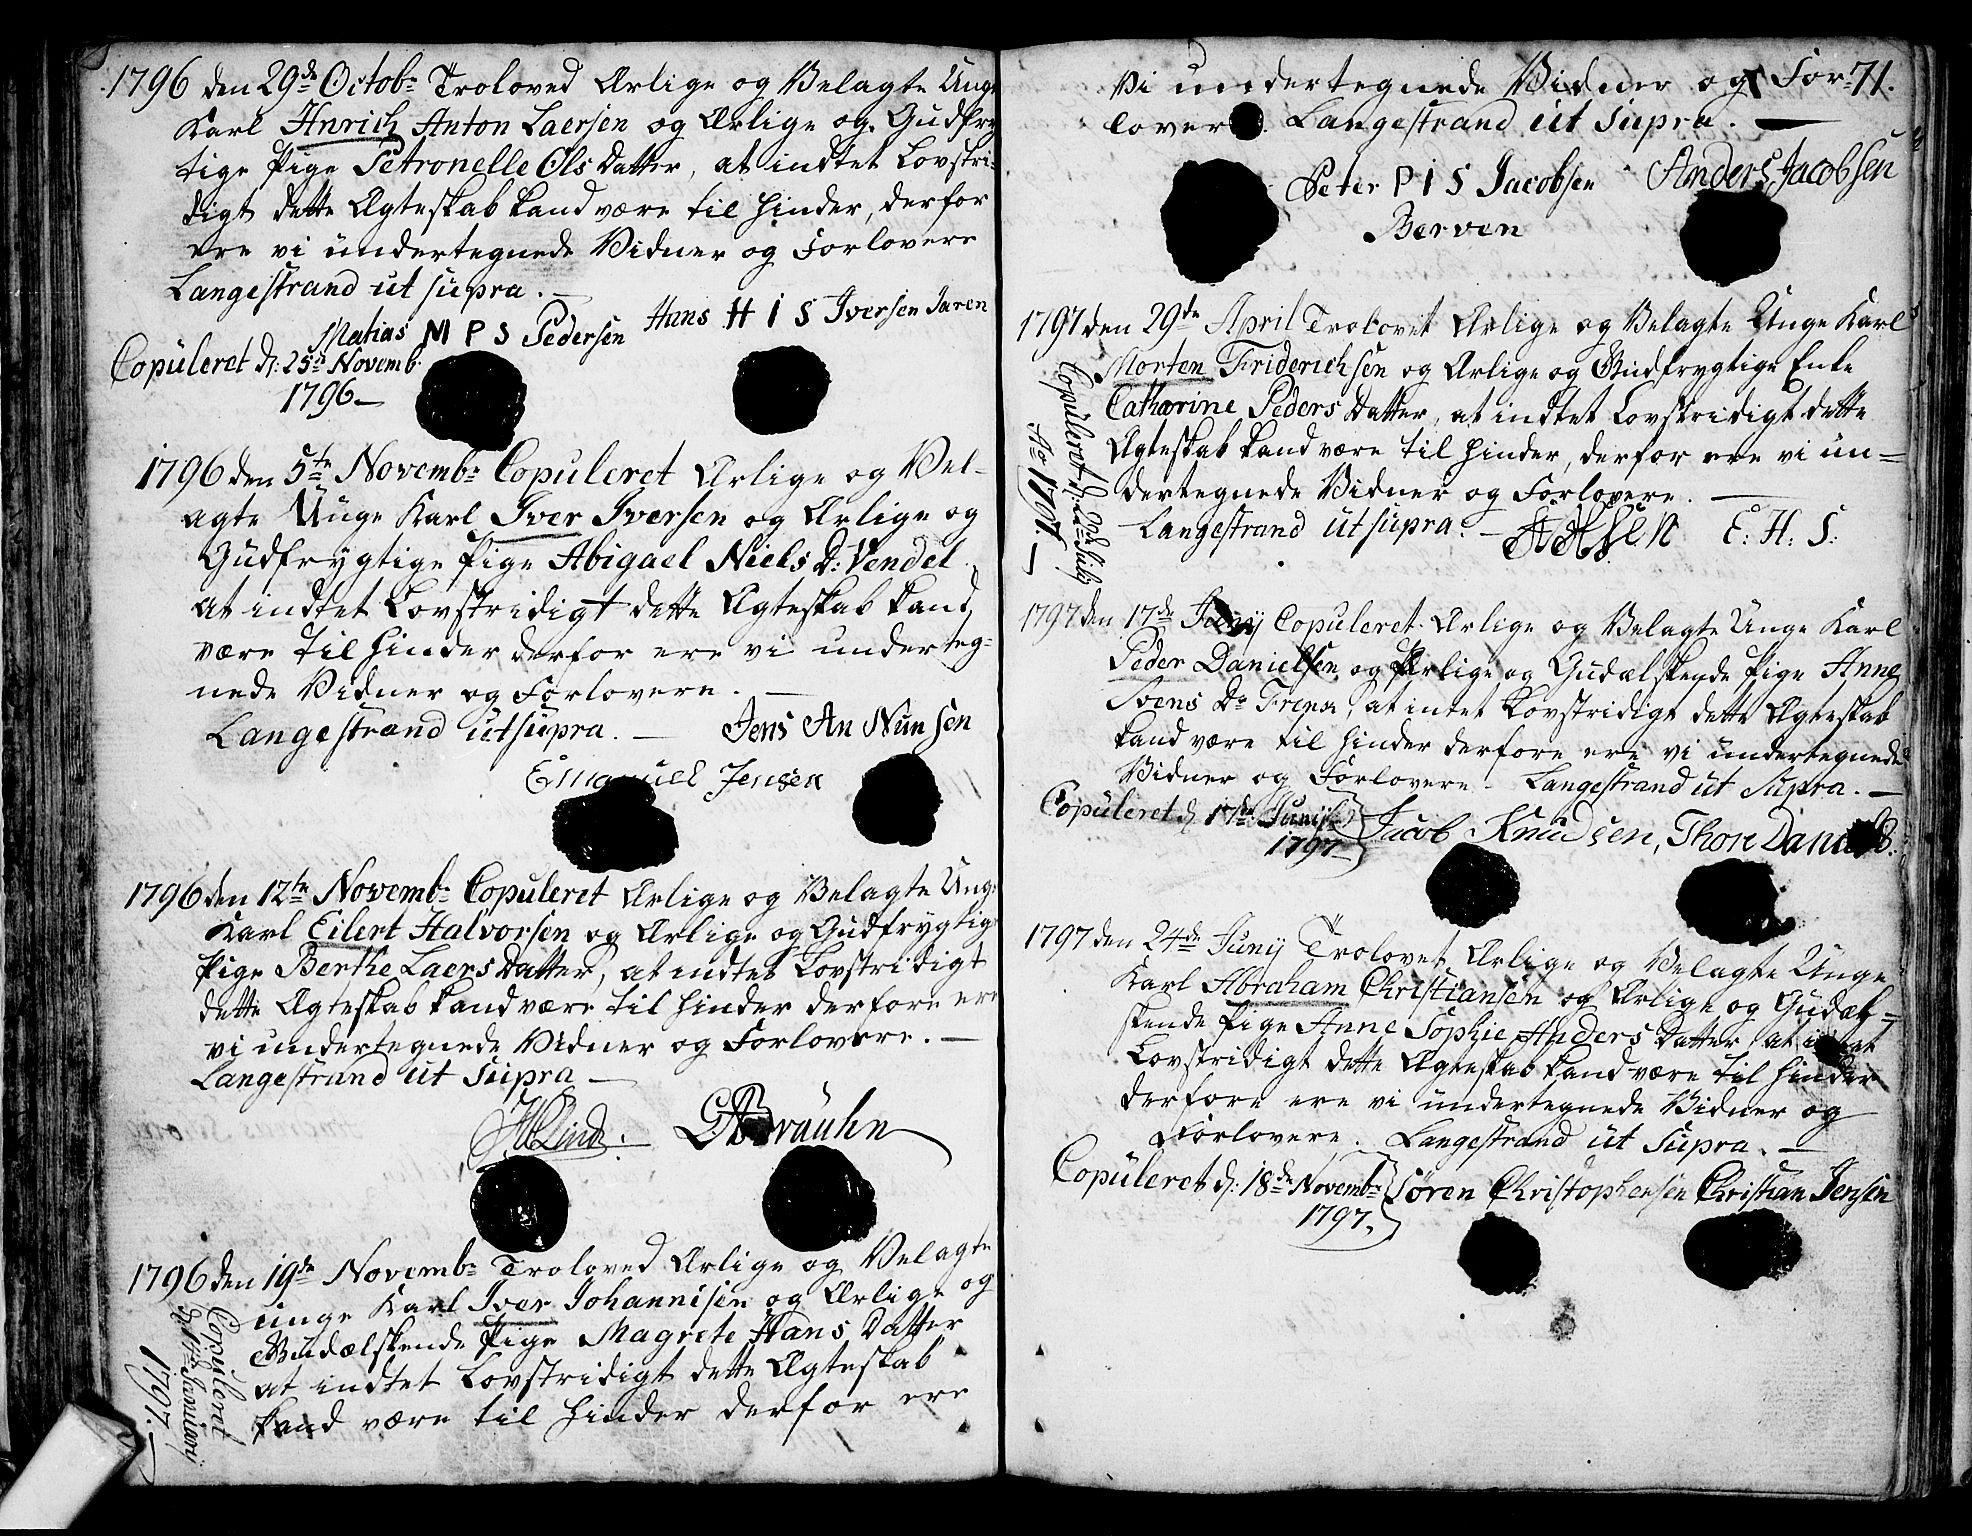 1796 den 29de Octobr Troloved Ærlige og Velagte Unge
Karl Hnrich Anton Laersen og Ærlige og Gudfryg
tige Pige Petronelle Ols Datter, at indtet Lovstri-
digt dette Ægteskab kand være til Hinder, derfor
ere vi undertegnede Vidner og Forlovere
Langestrand ut supra.
Matias M P S Pedersen Hans H I S Iversen Jaren
Copuleret d: 25de Novemb.
1796
1796 den 5te Novembr Copuleret Ærlige og Vel-
agte Unge Karl Iver Iversen og Ærlige og
Gudfrygtige Pige Abigael Niels D: Vendel
at indtet Lovstridigt dette Ægteskab kand
være til Hinder derfor ere vi underteg-
nede Vidner og Forlovere.
Langestrand ut supra. Jens An Nunsen
Emanuel Jensen
1796 den 12te Novembr Copuleret Ærlige og Velagte Unge
Karl Eilert Halvorsen og Ærlige og Gudfrygtige
Pige Berthe Laers Datter, at indtet Lovstridigt
dette Ægteskab kand være til Hinder derfore ere
vi undertegnede Vidner og Forlovere.
Langestrand ut Supra
Lind:
1796 den 19de Novembr Troloved Ærlige og Velagte
unge Karl Iver Johannisen og Ærlige og
Gudælskende Pige Magrete Hans Datter
at indtet Lovstridigt dette Ægteskab
kand være til Hinder derfor ere
Copuleret
Januarij
1797.
71.
Vi undertegnede Vidner og For-
lovere. Langestrand ut supra.
Peter P I S Jacobsen Anders Jacobsen
Berven
1797 den 29de April Trolovet Ærlige og Velagte Unge Karl
Morten Friderichsen og Ærlige og Gudfrygtige Enke
Catharine Peders Datter, at indtet Lovstridigt dette
Ægteskab kand være til Hinder, derfor ere vi un-
dertegnede Vidner og Forlovere.
Langestrand ut supra. E: H: S:
Copuleret d: 22de July
Ao 1797.
1797 den 17de Junij Copuleret Ærlige og Velagte Unge Karl
Peder Danielsen og Ærlige og Gudælskende Pige Anne
Svens Dr, at intet Lovstridigt dette Ægteskab
kand være til Hinder derfore ere vi undertegnede
Vidner og Forlovere. Langestrand ut Supra.
Copuleret d 17de Junij
1797
Jacob Knudsen, Thore
1797 den 24de Junij Trolovet Ærlige og Velagte Unge
Karl Abraham Christiansen og Ærlige og Gudæl-
skende Pige Anne Sophie Anders Datter, at intet
Lovstridigt dette Ægteskab kand være til Hinder
derfore ere vi undertegnede Vidner og
Forlovere. Langestrand ut Supra.
Copuleret d: 18de Novembr Søren Christophersen Christian Jensen
1797.